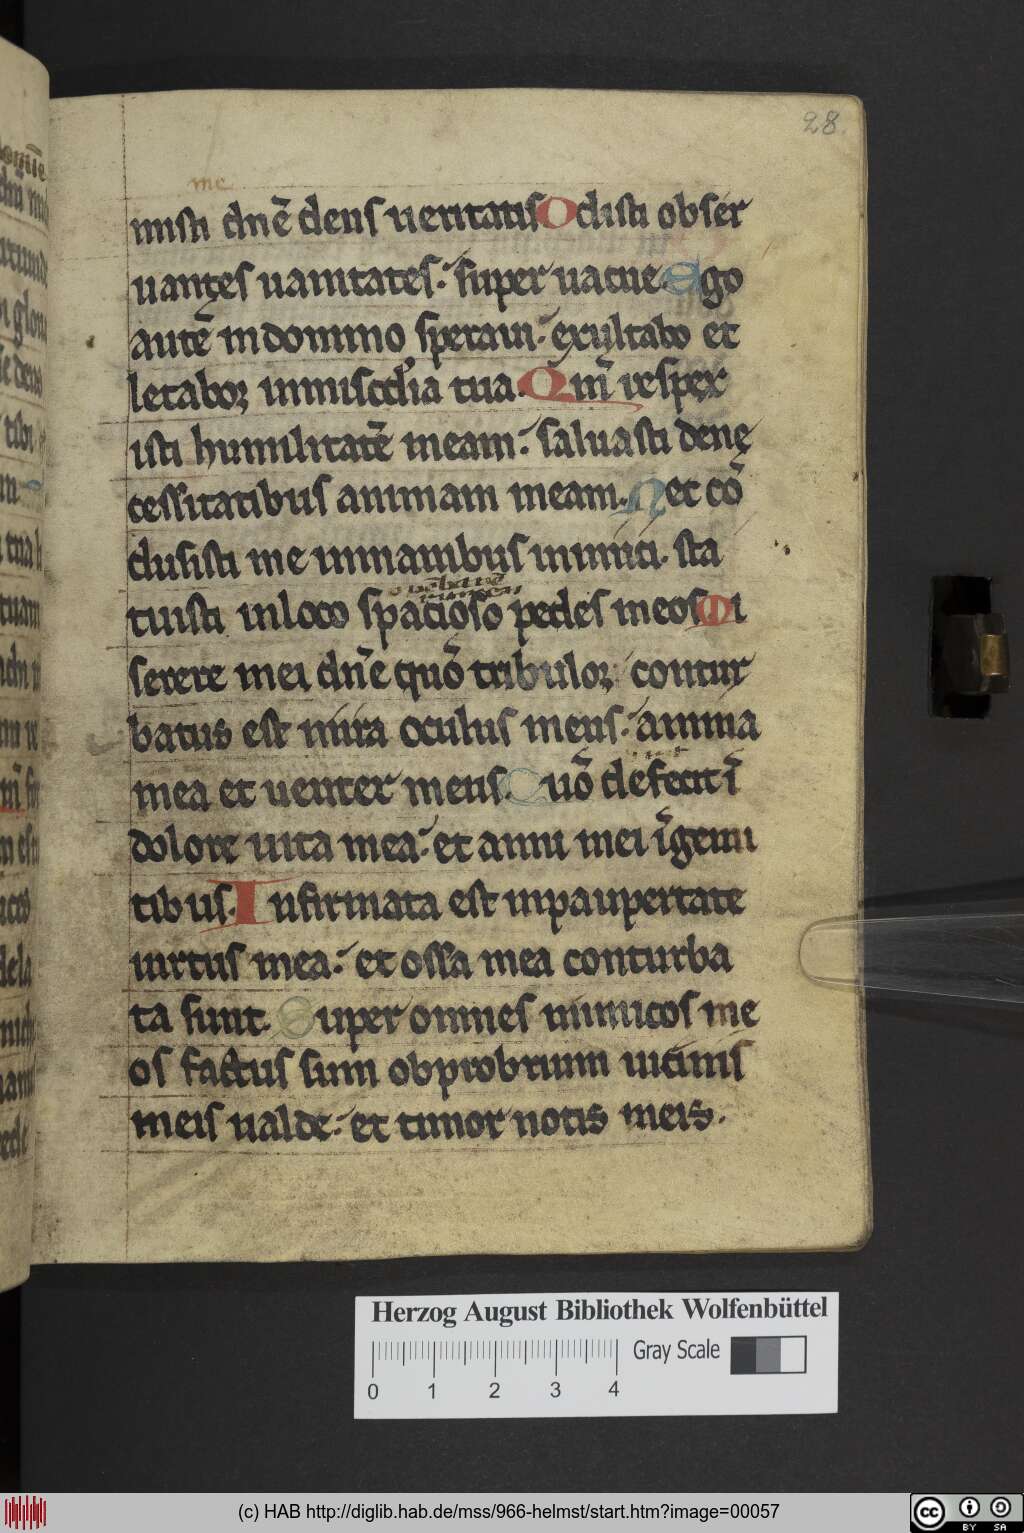 28.
me
misti dn̄e deus ueritatis Odisti obser
uantes uanitates. super uacue. Ego
autē in domino speraui. exultabo et
letabor in misc̄dia tua. Qm̄ respex
isti humilitatē meam. saluasti de nec
cessitatibus animam meam. Nec cō
clusisti me in manibus inimici. sta
tuisti in loco spacioso pedes meos Mi
serere mei dn̄e quō tribulor contur
batus est in ira oculus meus. anima
mea et uenter meus. Quō defecit ī
dolore uita mea. et anni mei ī gemi
tibus. Infirmata est in paupertate
uirtus mea. et ossa mea conturba
ta sunt. Super omnes inimicos me
os factus sum obprobrium uicinis
meis ualde. et timor notis meis.
Herzog August Bibliothek Wolfenbüttel
Gray Scale
0 1 2 3 4
(c) HAB http://diglib.hab.de/mss/966-helmst/start.htm?image=00057
cc BY SA